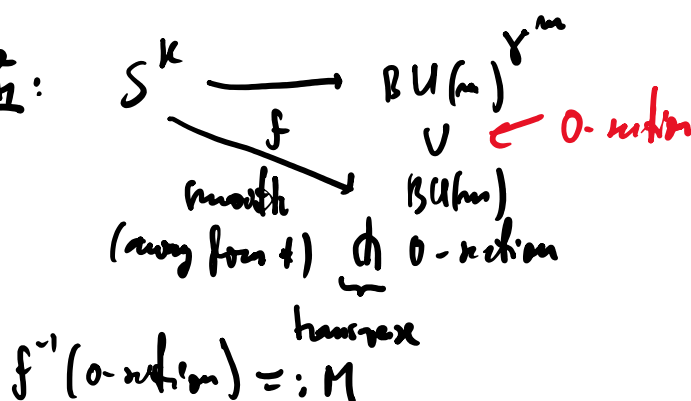 : S^k ⟶ BU(m)^{γ^m}
f ∪ ← 0-section
smooth BU(m)
(away from *) ⋔ 0-section
transverse
f^{-1}(0-section) =: M